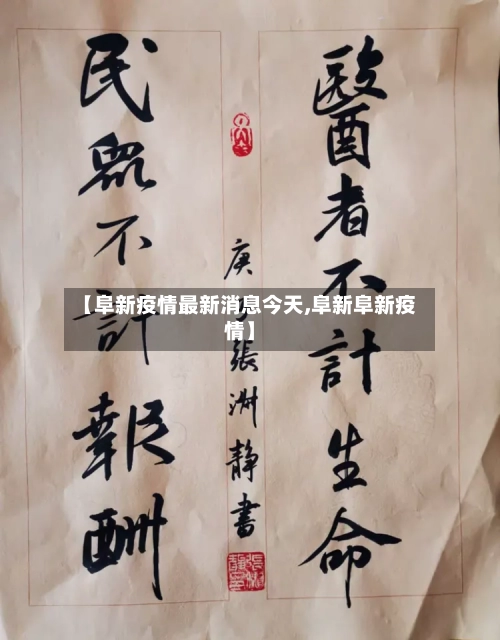 醫者不計生命
民眾不計報酬
庚子張洲靜書
【阜新疫情最新消息今天,阜新阜新疫
情】